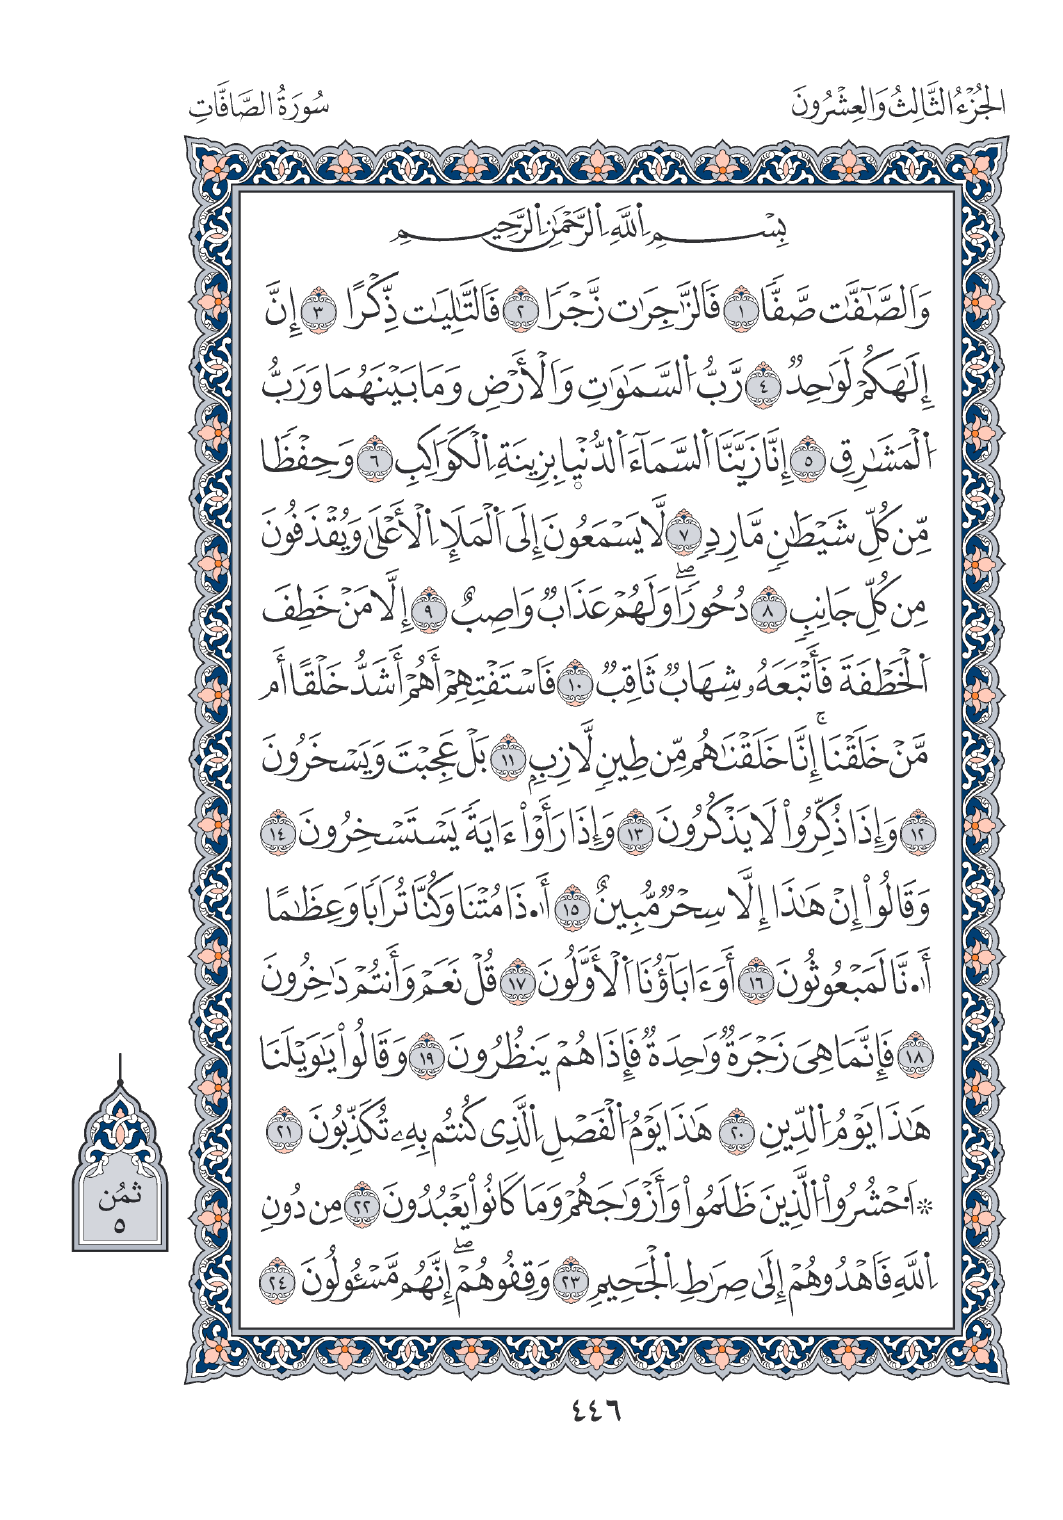 الجُزْءُ الثَّالِثُ وَالعِشْرُونَ
سُورَةُ الصَّافَّاتِ
بِسْمِ اِ۬للَّهِ اِ۬لرَّحْمَٰنِ اِ۬لرَّحِيمِ
وَالصَّٰٓفَّٰت صَّفّٗا ١ فَالزَّٰجِرَٰت زَّجْرٗا ٢ فَالتَّٰلِيَٰت ذِّكْرًا ٣ إِنَّ
إِلَٰهَكُمْ لَوَٰحِدٞ ٤ رَّبُّ اُ۬لسَّمَٰوَٰتِ وَالْأَرْضِ وَمَا بَيْنَهُمَا وَرَبُّ
اُ۬لْمَشَٰرِقِ ٥ إِنَّا زَيَّنَّا اَ۬لسَّمَآءَ اَ۬لدُّنْيا بِزِينَةِ اِ۬لْكَوَاكِبِ ٦ وَحِفْظٗا
مِّن كُلِّ شَيْطَٰنٖ مَّارِدٖ ٧ لَّا يَسْمَعُونَ إِلَى اَ۬لْمَلَإِ اِ۬لْأَعْلَىٰ وَيُقْذَفُونَ
مِن كُلِّ جَانِبٖ ٨ دُحُورٗاۖ وَلَهُمْ عَذَابٞ وَاصِبٌ ٩ إِلَّا مَنْ خَطِفَ
اَ۬لْخَطْفَةَ فَأَتْبَعَهُۥ شِهَابٞ ثَاقِبٞ ١٠ فَاسْتَفْتِهِمْ أَهُمْ أَشَدُّ خَلْقًا أَم
مَّنْ خَلَقْنَاۚ إِنَّا خَلَقْنَٰهُم مِّن طِينٖ لَّازِبِۭ ١١ بَلْ عَجِبْتَ وَيَسْخَرُونَ
١٢ وَإِذَا ذُكِّرُواْ لَا يَذْكُرُونَ ١٣ وَإِذَا رَأَوْاْ ءَايَةٗ يَسْتَسْخِرُونَ ١٤
وَقَالُواْ إِنْ هَٰذَا إِلَّا سِحْرٞ مُّبِينٌ ١٥ أَ۟ذَا مُتْنَا وَكُنَّا تُرَابٗا وَعِظَٰمًا
أَ۟نَّا لَمَبْعُوثُونَ ١٦ أَوَءَابَآؤُنَا اَ۬لْأَوَّلُونَ ١٧ قُلْ نَعَمْ وَأَنتُمْ دَٰخِرُونَ
١٨ فَإِنَّمَا هِيَ زَجْرَةٞ وَٰحِدَةٞ فَإِذَا هُمْ يَنظُرُونَ ١٩ وَقَالُواْ يَٰوَيْلَنَا
هَٰذَا يَوْمُ اُ۬لدِّينِ ٢٠ هَٰذَا يَوْمُ اُ۬لْفَصْلِ اِ۬لَّذِي كُنتُم بِهِۦ تُكَذِّبُونَ ٢١
۞ اَ۟حْشُرُواْ اُ۬لَّذِينَ ظَلَمُواْ وَأَزْوَٰجَهُمْ وَمَا كَانُواْ يَعْبُدُونَ ٢٢ مِن دُونِ
اِ۬للَّهِ فَاهْدُوهُمْ إِلَىٰ صِرَٰطِ اِ۬لْجَحِيمِ ٢٣ وَقِفُوهُمْۖ إِنَّهُم مَّسْـُٔولُونَ ٢٤
ثمُن
٥
٤٤٦